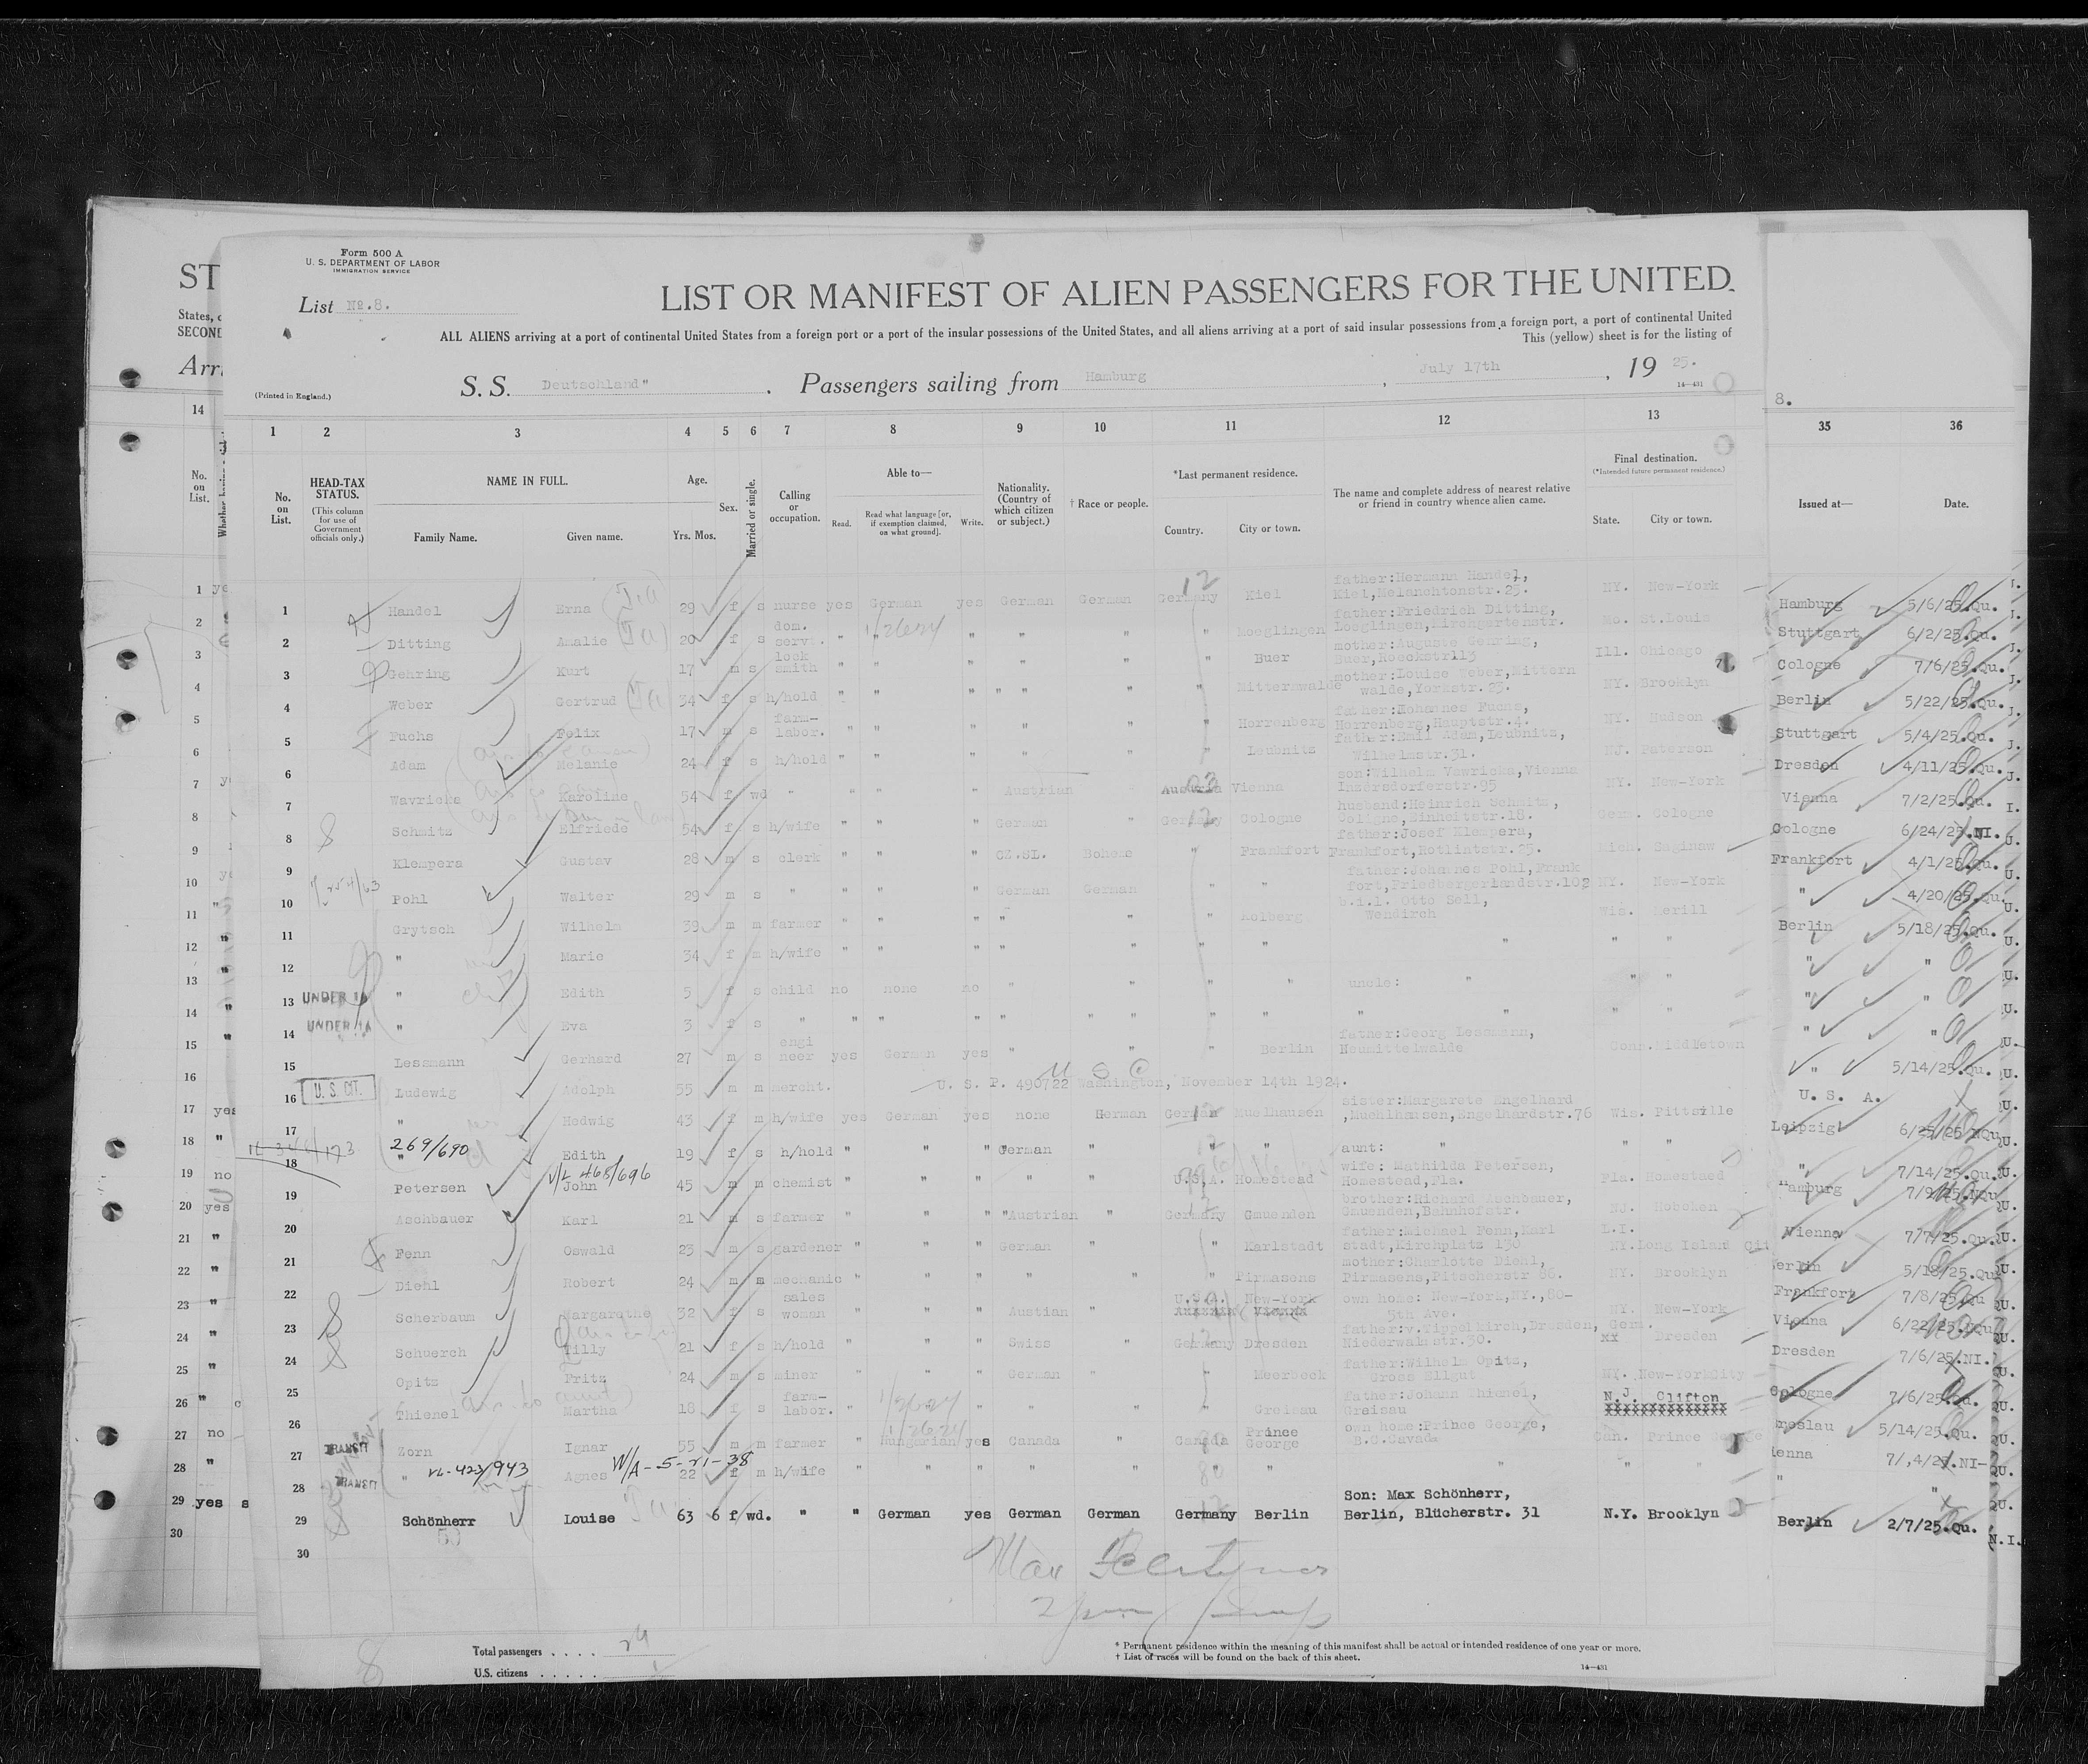 Form 500 A
U. S. DEPARTMENT OF LABOR
IMMIGRATION SERVICE
ST
List No. 8.
LIST OR MANIFEST OF ALIEN PASSENGERS FOR THE UNITED
States,
SECOND
ALL ALIENS arriving at a port of continental United States from a foreign port or a port of the insular possessions of the United States, and all aliens arriving at a port of said insular possessions from a foreign port, a port of continental United
This (yellow) sheet is for the listing of
Arri
(Printed in England.)
S. S. Deutschland" . Passengers sailing from Hamburg , July 17th , 19 25.
14—431
8.
14 1 2 3 4 5 6 7 8 9 10 11 12 13 35 36
No. on List.
No. on List.
HEAD-TAX STATUS.
(This column for use of Government officials only.)
NAME IN FULL.
Family Name. Given name.
Age.
Yrs. Mos.
Sex.
Married or single.
Calling or occupation.
Able to—
Read. Read what language [or, if exemption claimed, on what ground]. Write.
Nationality. (Country of which citizen or subject.)
† Race or people.
*Last permanent residence.
Country. City or town.
The name and complete address of nearest relative or friend in country whence alien came.
Final destination.
(*Intended future permanent residence.)
State. City or town.
Issued at— Date.
1 Handel Erna 29 f s nurse yes German yes German German Germany Kiel father:Hermann Handel, Kiel,Melanchtonstr.25. NY. New-York Hamburg 5/6/25.Qu.
2 Ditting Amalie 20 f s dom. servi. " " " " " " Moeglingen father:Friedrich Ditting, Loeglingen,Kirchgartenstr. Mo. St.Louis Stuttgart 6/2/25.Qu.
3 Gehring Kurt 17 m s lock smith " " " " " " Buer mother:Auguste Gehring, Buer,Hoeckstr113 Ill. Chicago Cologne 7/6/25.Qu.
4 Weber Gertrud 34 f s h/hold " " " " " " " Mittenwalde mother:Louise Weber,Mittern walde,Yorkstr.25. NY. Brooklyn Berlin 5/22/25.Qu.
5 Fuchs Felix 17 m s farm-labor. " " " " " " Herrenberg father:Hohannes Fuchs, Herrenberg,Hauptstr.4. NY. Hudson Stuttgart 5/4/25.Qu.
6 Adam Melanie 24 f s h/hold " " " " " " Leubnitz father:Emil Adam,Leubnitz, Wilhelmstr.31. NJ. Paterson Dresden 4/11/25.Qu.
7 Wavricka Karoline 54 f wd " " " " Austrian " Austria Vienna son:Wilhelm Vawricka,Vienna Inzersdorferstr.95 NY. New-York Vienna 7/2/25.Qu.
8 Schmitz Elfriede 54 f s h/wife " " " German " Germany Cologne husband:Heinrich Schmitz, Coligne,Einheitstr.18. Germ. Cologne Cologne 6/24/25.NI.
9 Klempera Gustav 28 m s clerk " " " CZ.SL. Bohem " Frankfort father:Josef Klempera, Frankfort,Rotlintstr.25. Mich. Saginaw Frankfort 4/1/25.Qu.
10 Pohl Walter 29 m s " " " " German German " " father:Johannes Pohl,Frank fort,Friedbergerlandstr.102 NY. New-York " 4/20/25.Qu.
11 Grytsch Wilhelm 39 m m farmer " " " " " " Kolberg b.i.l. Otto Sell, Wis. Merill Berlin 5/18/25.Qu.
12 " Marie 34 f m h/wife " " " " " " " " " " " "
13 UNDER 16 " Edith 5 f s child no none no " " " " uncle: " " " " "
14 UNDER 16 " Eva 3 f s " " " " " " " " " " " " " "
15 Lessmann Gerhard 27 m s engi neer yes German yes " " " Berlin father:Georg Lessmann, Neumittelwalde Conn.Middletown " 5/14/25.Qu.
16 U. S. CIT. Ludewig Adolph 55 m m mercht. U. S. P. 490722 Washington, November 14th 1924. U S C U. S. A.
17 " Hedwig 43 f m h/wife yes German yes none German German Muelhausen sister:Margarete Engelhard ,Muehlhausen,Engelhardstr.76 Wis. Pittsville Leipzig 6/25/25 NQu
18 269/690 " Edith 19 f s h/hold " " " German " " " aunt: " " " " 7/14/25.Qu.
19 Petersen V/L 468/696 John 45 m m chemist " " " " " U.S.A. Homestead wife: Mathilda Petersen, Homestead,Fla. Fla. Homestaed Hamburg 7/9/25.NQu
20 Aschbauer Karl 21 m s farmer " " " "Austrian " Germany Gmuenden brother:Richard Aschbauer, Gmuenden,Bahnhofstr. NJ. Hoboken Vienna 7/7/25.Qu.
21 Fenn Oswald 23 m s gardener " " " German " " Karlstadt father:Michael Fenn,Karl stadt,Kirchplatz 130 L.I. NY.Long Island Cit Berlin 5/18/25.Qu
22 Diehl Robert 24 m m mechanic " " " " " " Pirmasens mother:Charlotte Diehl, Pirmasens,Pitscherstr 86. NY. Brooklyn Frankfort 7/8/25.Qu
23 Scherbaum Margarethe 32 f s sales woman " " " Austian " U.S.A. New-York own home: New-York,NY.,80- 5th Ave. NY. New-York Vienna 6/22/25.NQu
24 Schuerch Tilly 21 f s h/hold " " " Swiss " Germany Dresden father:v.Tippelkirch,Dresden, Niederwalmstr.30. Germ. xx Dresden Dresden 7/6/25.NI.
25 Opitz Fritz 24 m s miner " " " German " " Meerbeck father:Wilhelm Opitz, Gross Ellgut NY. New-YorkCity Cologne 7/6/25.Qu.
26 Thienel Martha 18 f s farm-labor. " " " " " " Greisau father:Johann Thienel, Greisau N.J. Clifton Breslau 5/14/25.Qu.
27 TRANSIT Zorn Ignar 55 m m farmer " Hungarian yes Canada " Canada Prince George own home:Prince George, B.C.Cavad. Can. Prince George Vienna 7/,4/25.NI-
28 TRANSIT " VL-423/943 Agnes W/A-5-21-38 22 f m h/wife " " " " " " " " " " " "
29 Schönherr Louise 63 6 f wd. " " German yes German German Germany Berlin Son: Max Schönherr, Berlin, Blücherstr. 31 N.Y. Brooklyn Berlin 2/7/25.Qu.
30
Total passengers . . . .
U.S. citizens . . . . .
* Permanent residence within the meaning of this manifest shall be actual or intended residence of one year or more.
† List of races will be found on the back of this sheet.
14—431